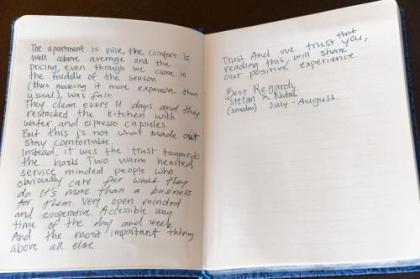 The apartment is nice, the comfort is
well above average and the
pricing, even though we came in
the middle of the season
(thus making it more expensive than
usual), was fair.
They clean every 11 days and they
restocked the kitchen with
water and espresso capsules.
But this is not what made out
stay comfortable.
Instead, it was the trust towards
the hosts Two warm hearted
service minded people who
obviously care for what they
do. It's more than a business
for them. Very open minded
and cooperative. Accessible any
time of the day and week.
And the most important thing
above all else
Trust. And we trust you, that
reading this, will share
our positive experience.
Best Regards
Stefan
July - August